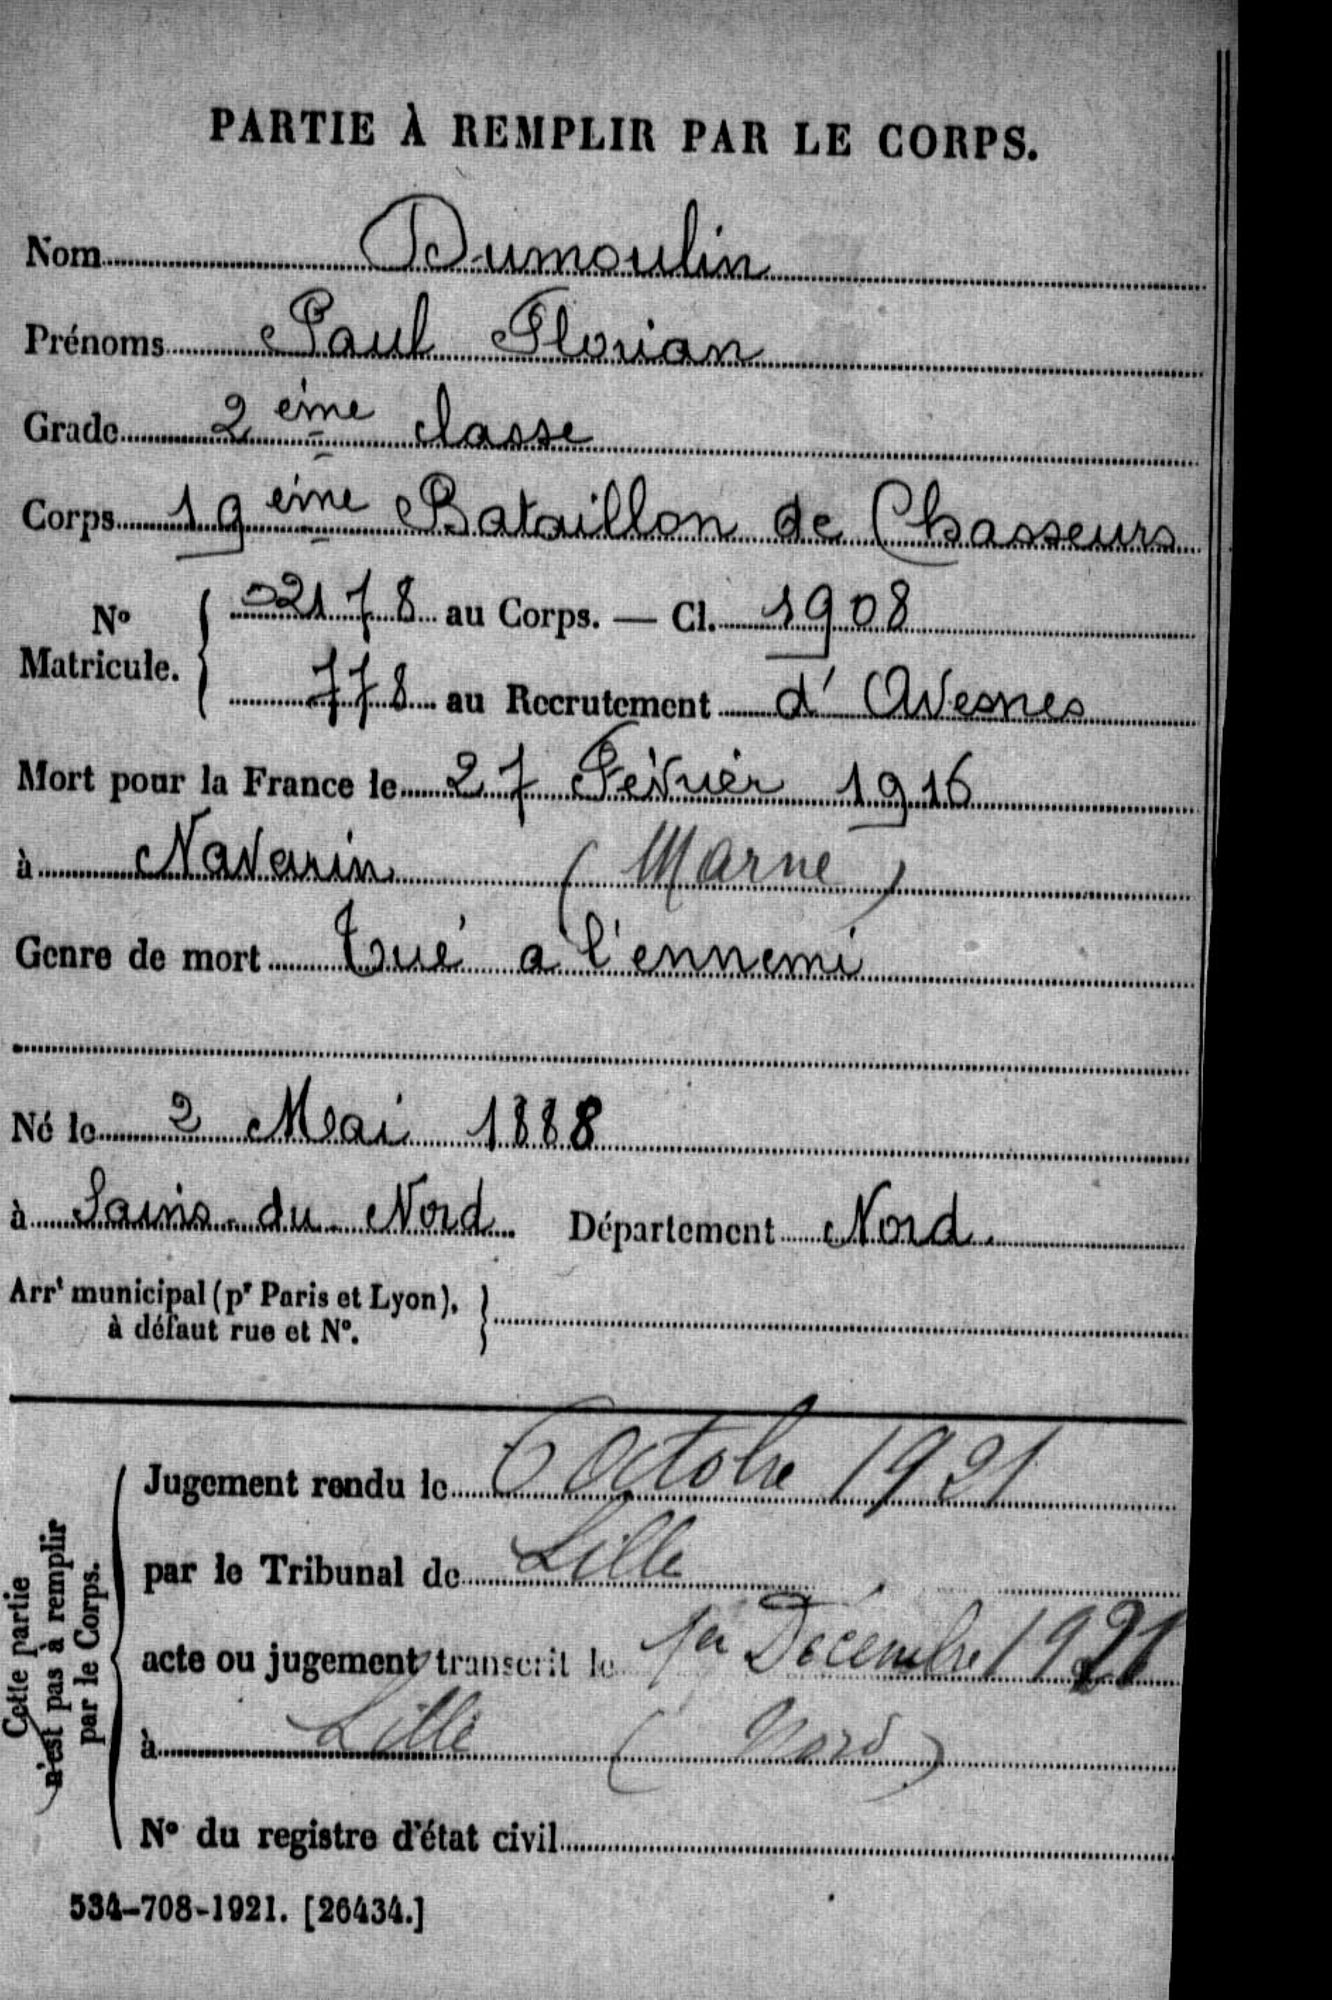 PARTIE À REMPLIR PAR LE CORPS.
Nom Dumoulin
Prénoms Paul Florian
Grade 2 ème classe
Corps 19 ème Bataillon de Chasseurs
No Matricule. { 02178 au Corps. — Cl. 1908
778 au Recrutement d' Avesnes
Mort pour la France le 27 Février 1916
à Navarin (Marne)
Genre de mort Tué a l'ennemi
Né le 2 Mai 1888
à Sains du Nord Département Nord
Arrt municipal (pr Paris et Lyon),
à défaut rue et No. }
Cette partie
n'est pas à remplir
par le Corps.
Jugement rendu le 6 Octobre 1921
par le Tribunal de Lille
acte ou jugement transcrit le 1er Décembre 1921
à Lille (Nord)
No du registre d'état civil
534-708-1921. [26434.]